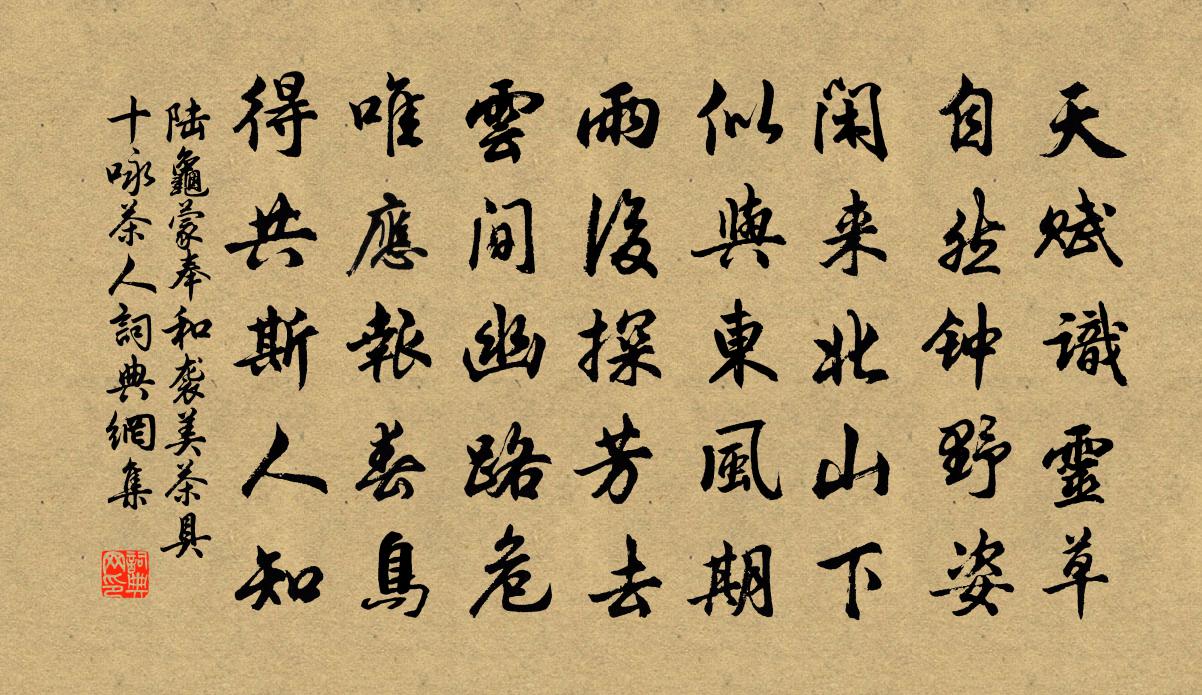 天赋識靈草
自然钟野姿
閑来北山下
似與東風期
雨後探芳去
雲間幽路危
唯應報春鳥
得共斯人知
陆龜蒙奉和袭美茶具
十咏茶人詞典網集
詞典网印